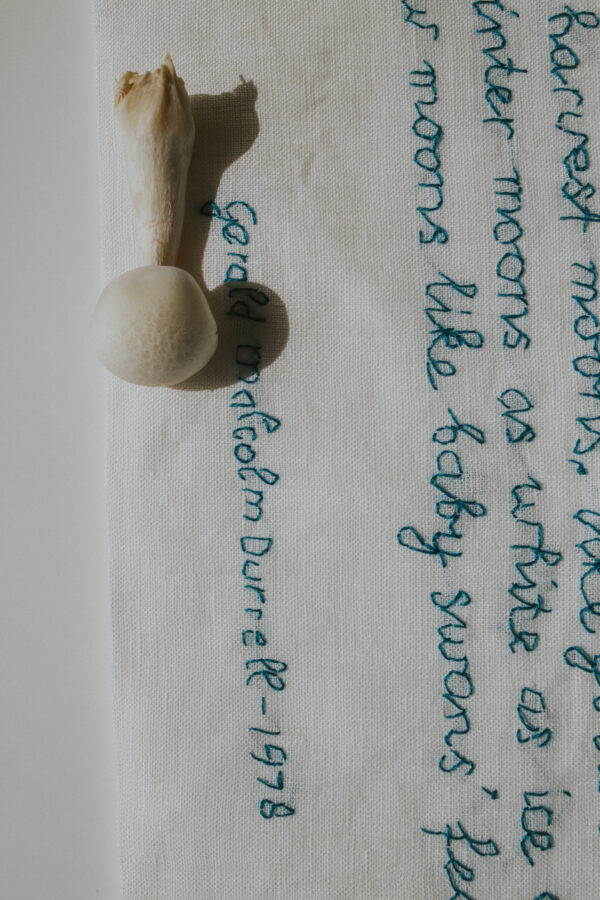 harvest moons, like
inter moons as white as ice
w moons like baby swans' fe
Gerald malcolm Durrell - 1978